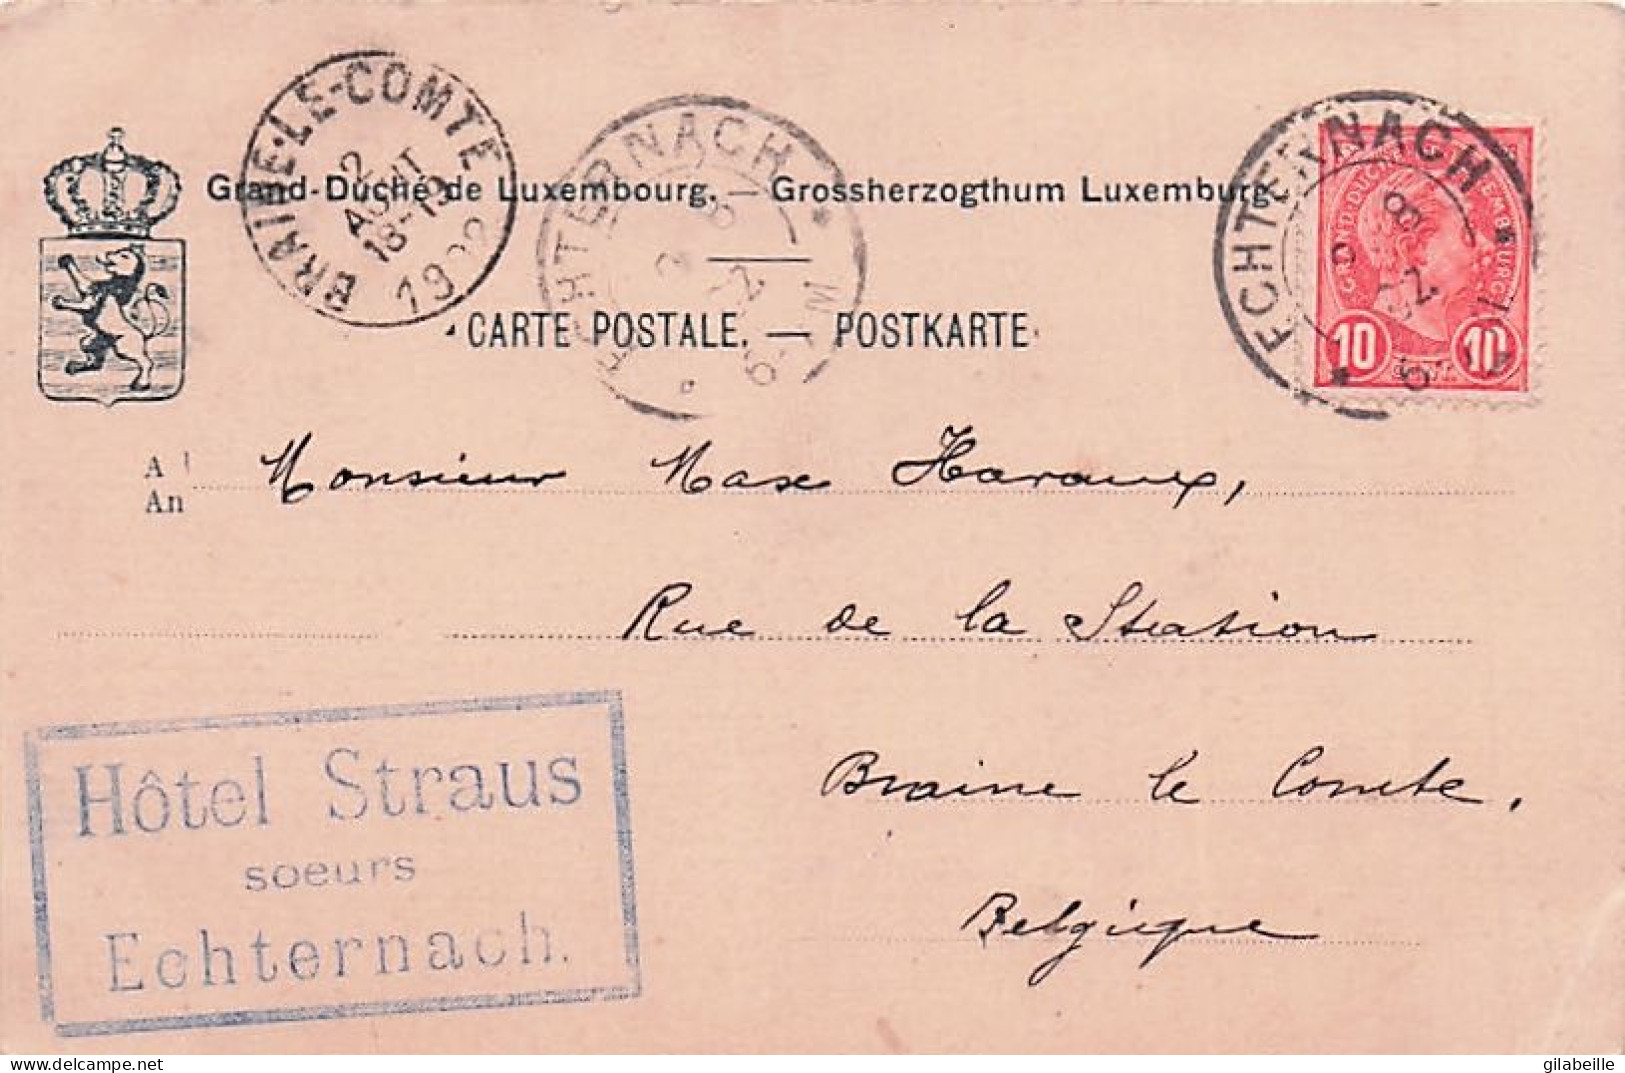 BRAINE-LE-COMTE
2
AOUT
18-19
ECHTERNACH
ECHTERNACH
Grand-Duché de Luxembourg. — Grossherzogthum Luxemburg.
CARTE POSTALE. — POSTKARTE
10 10
A
An
Monsieur Max Haraux,
Rue de la Station
Braine le Comte.
Belgique
Hôtel Straus
soeurs
Echternach.
gilabeille